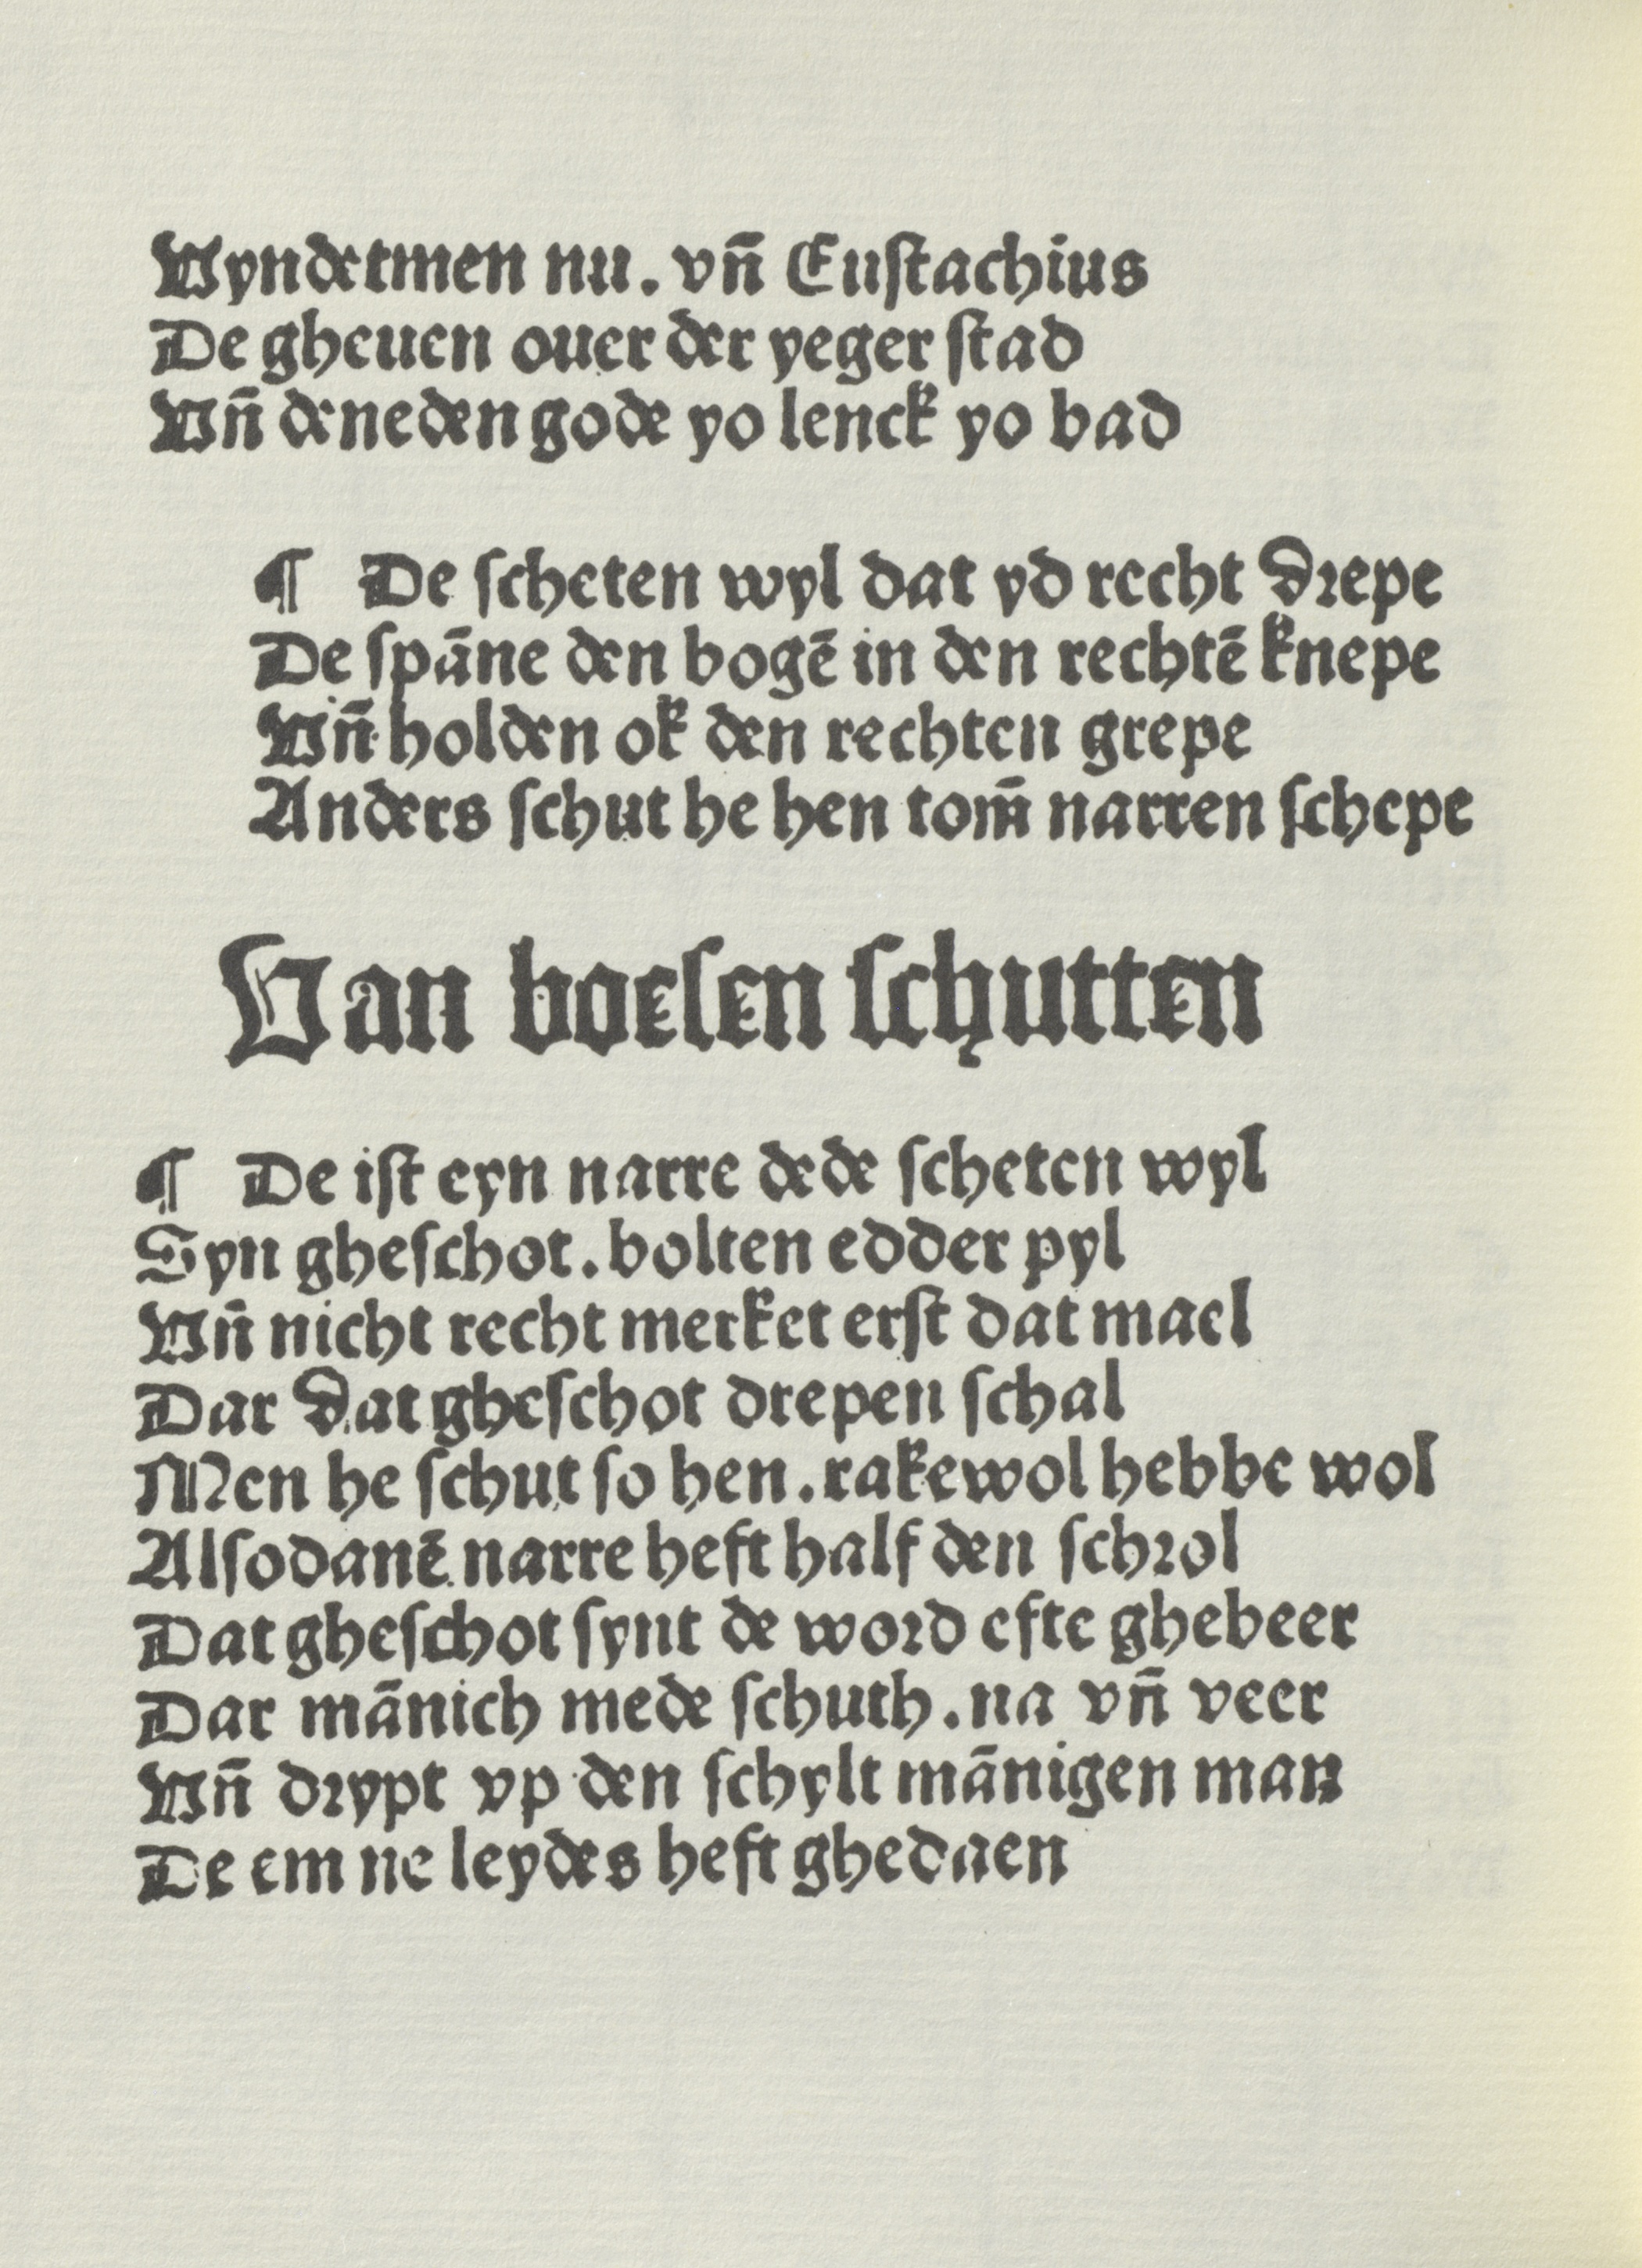 Vyndetmen nu. vn̄ Euſtachius
De gheuen ouer der yeger ſtad
Vn̄ deneden gode yo lenck yo bad
¶ De ſcheten wyl dat yd recht drepe
De ſpāne den bogē in den rechtē knepe
Vn̄ holden ok den rechten grepe
Anders ſchut he hen tom̄ narren ſchepe
Van boeſen ſchutten
¶ De iſt eyn narre dede ſcheten wyl
Syn gheſchot. bolten edder pyl
Vn̄ nicht recht merket erſt dat mael
Dar dat gheſchot drepen ſchal
Men he ſchut ſo hen. rakewol hebbe wol
Alſodanē narre heft half den ſchꝛol
Dat gheſchot ſynt de woꝛd efte ghebeer
Dar mānich mede ſchuth. na vn̄ veer
Vn̄ dꝛypt vp den ſchylt mānigen man
De em ne leydes heft ghedaen